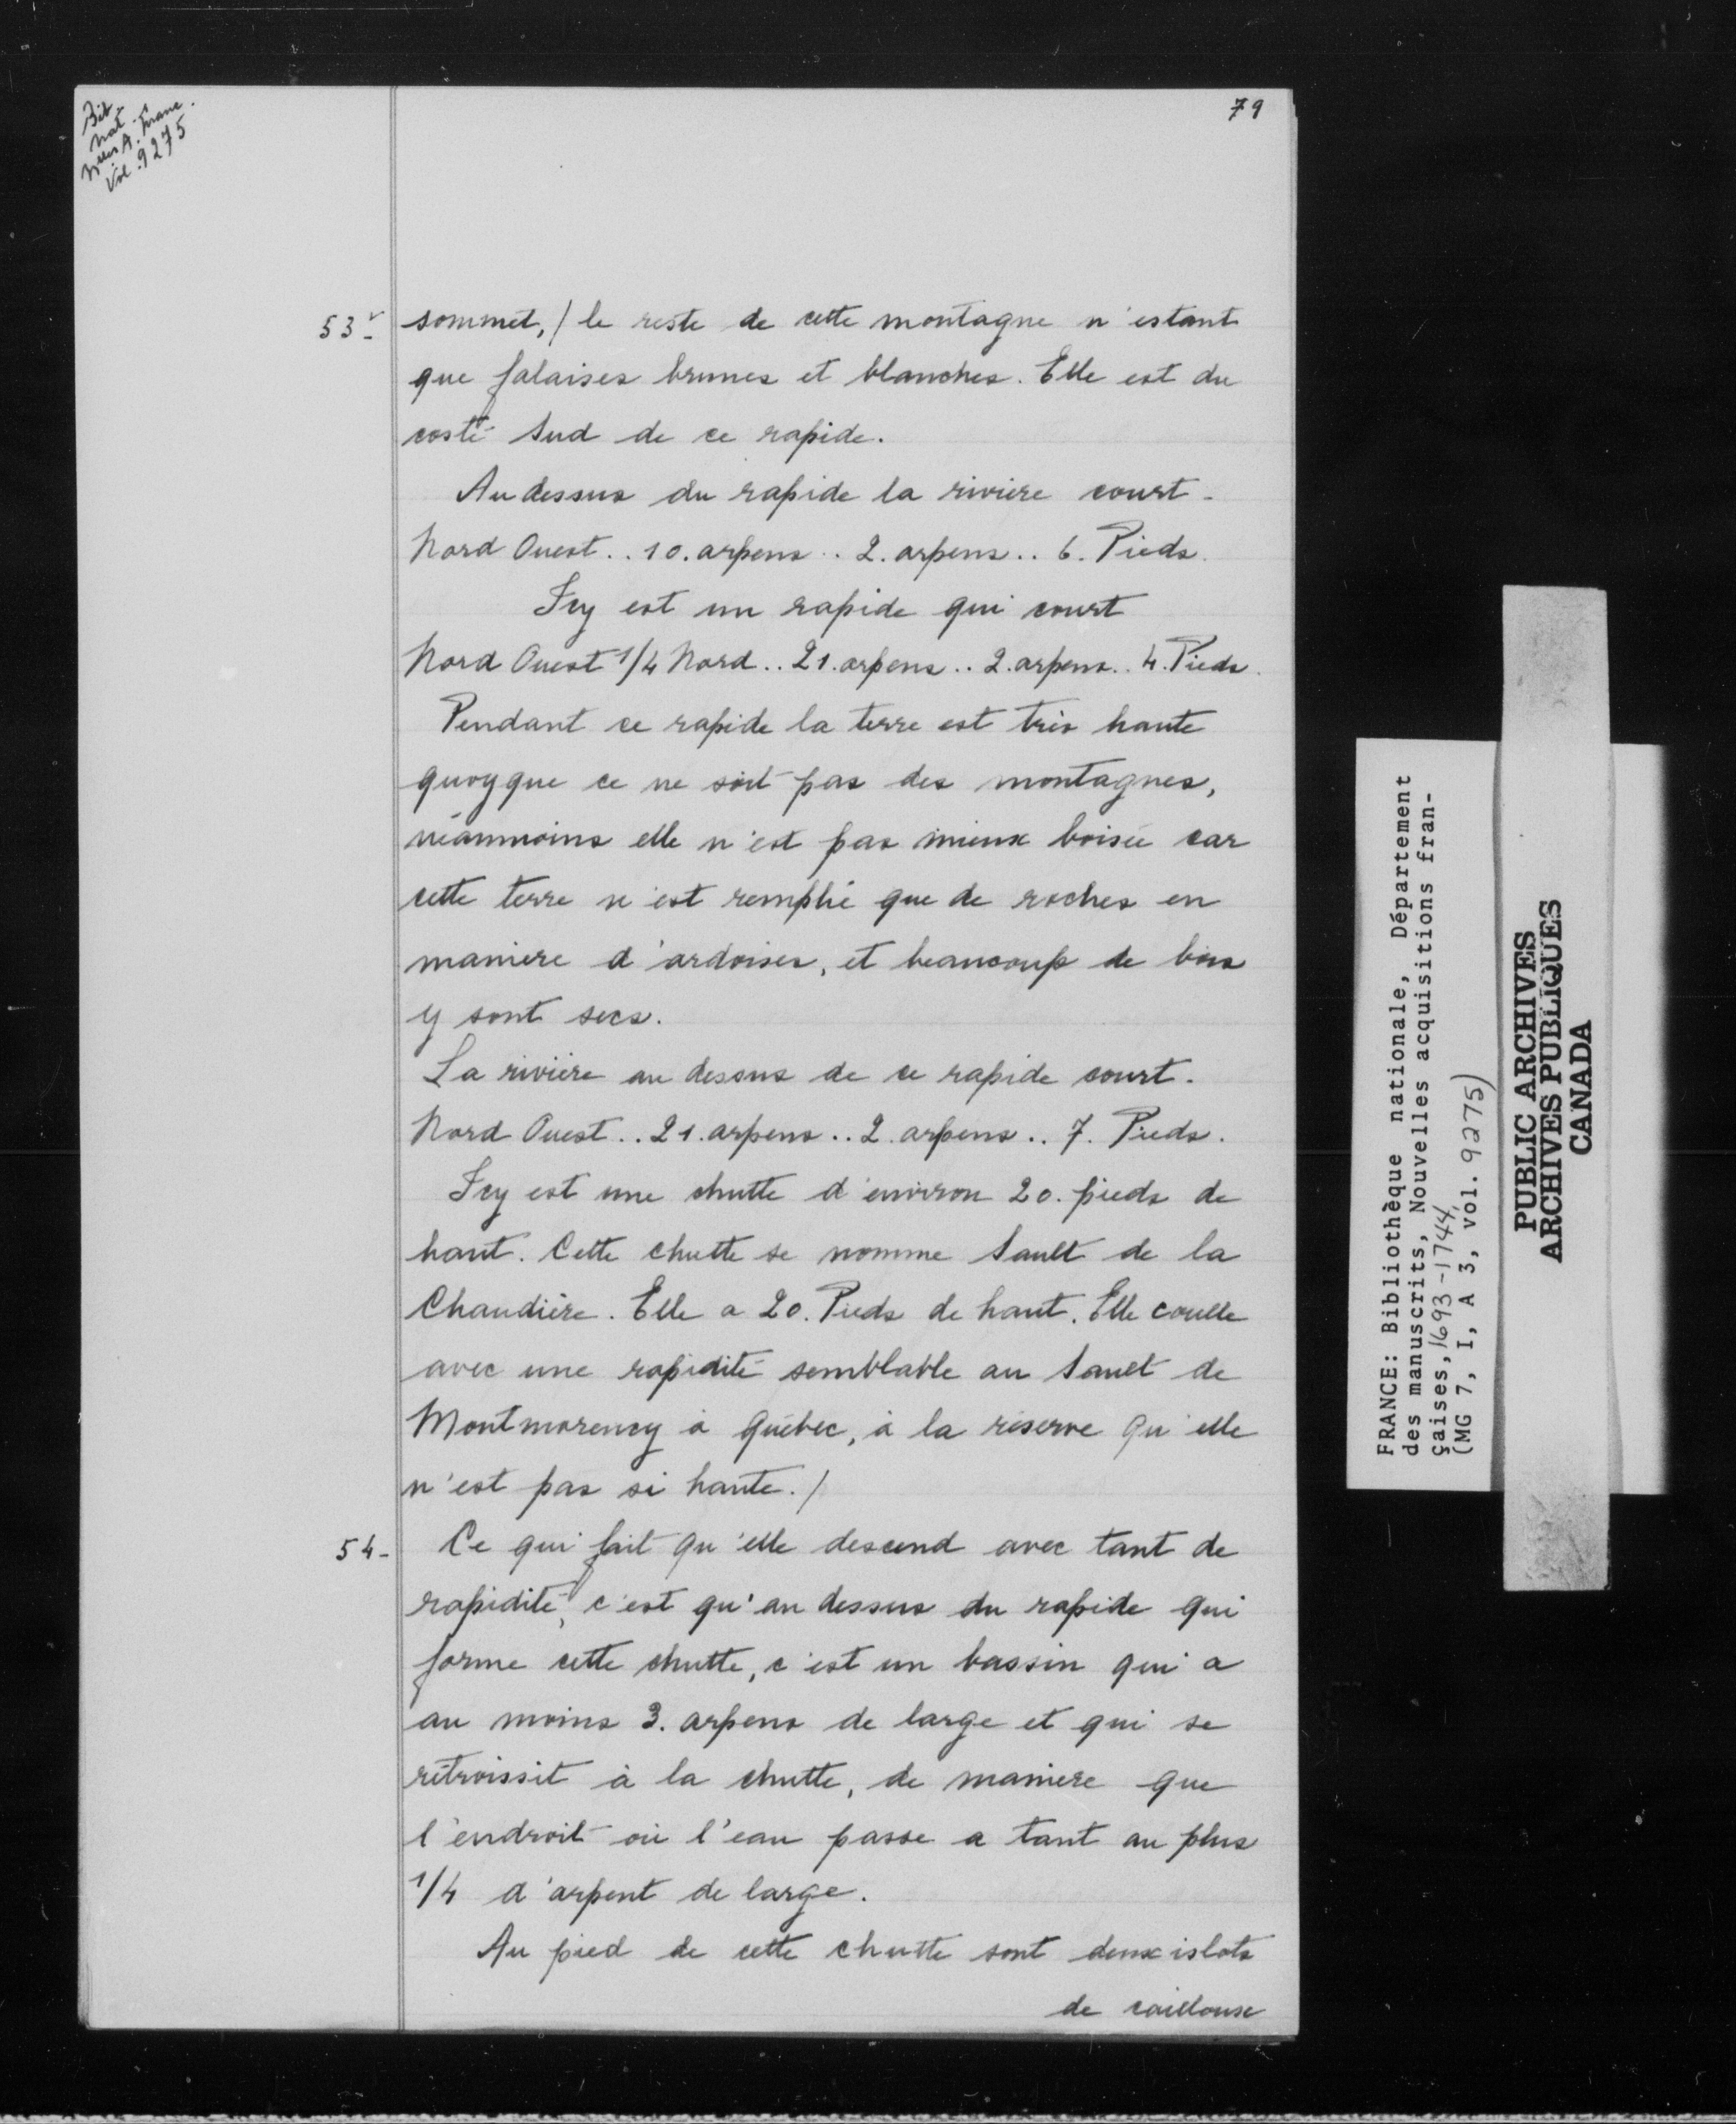 Bib.
nat.
Nlles A. franc.
Vol. 9275
79
53v- sommet, / le reste de cette montagne n'estant
que falaises brunes et blanches. Elle est du
costé Sud de ce rapide.
Au dessus du rapide la riviere court -
Nord Ouest .. 10. arpens .. 2. arpens .. 6. Pieds.
Icy est un rapide qui court
Nord Ouest 1/4 Nord .. 21. arpens .. 2. arpens .. 4. Pieds.
Pendant ce rapide la terre est très haute
quoyque ce ne soit pas des montagnes,
néanmoins elle n'est pas mieux boisée car
cette terre n'est remplie que de roches en
maniere d'ardoises, et beaucoup de bois
y sont secs.
La rivière au dessus de ce rapide court.
Nord Ouest .. 21. arpens .. 2. arpens .. 7. Pieds.
Icy est une chutte d'environ 20. pieds de
haut. Cette chutte se nomme Sault de la
Chaudière. Elle a 20. Pieds de haut. Elle coulle
avec une rapidité semblable au Sault de
Montmorency à Québec, à la réserve qu'elle
n'est pas si haute. /
54- Ce qui fait qu'elle descend avec tant de
rapidité, c'est qu'au dessus du rapide qui
forme cette chutte, c'est un bassin qui a
au moins 3. arpens de large et qui se
rétroissit à la chutte, de maniere que
l'endroit où l'eau passe a tant au plus
1/4 d'arpent de large.
Au pied de cette chutte sont deux islots
de cailloux
FRANCE: Bibliothèque nationale, Département
des manuscrits, Nouvelles acquisitions fran-
çaises, 1693-1744,
(MG 7, I, A 3, vol. 9275)
PUBLIC ARCHIVES
ARCHIVES PUBLIQUES
CANADA